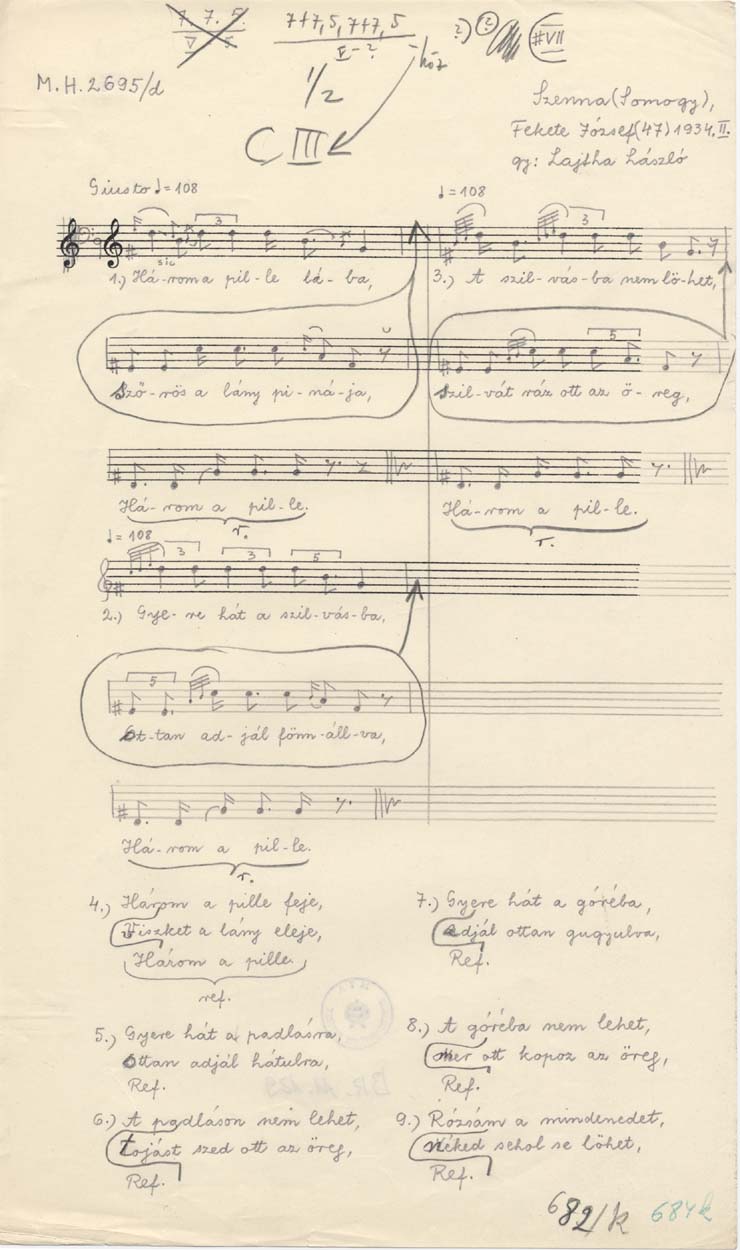 7. 7. 5.
V 5
7+7, 5, 7+7, 5
V - ?
?) ?
#VII
-ból
M.H. 2695/d
1/2
C III
Szenna (Somogy),
Fekete József (47) 1934. II.
gy: Lajtha László
Giusto ♩= 108
♩= 108
3
sic
3
1.) Há-rom a pil-le lá-ba,
3.) A szil-vás-ba nem lö-het,
5
Sző-rös a lány pi-ná-ja,
Szil-vát ráz ott az ö-reg,
Há-rom a pil-le.
Há-rom a pil-le.
r.
r.
♩= 108
3 3 5
2.) Gye-re hát a szil-vás-ba,
5
Ot-tan ad-jál fönn-áll-va,
Há-rom a pil-le.
r.
4.) Három a pille feje,
Viszket a lány eleje,
Három a pille.
ref.
7.) Gyere hát a góréba,
Adjál ottan gugyulva,
Ref.
5.) Gyere hát a padlásra,
Ottan adjál hátulra,
Ref.
8.) A góréba nem lehet,
Mer ott kopoz az öreg,
Ref.
6.) A padláson nem lehet,
Tojást szed ott az öreg,
Ref.
9.) Rózsám a mindenedet,
Néked sehol se löhet,
Ref.
682/k 684k